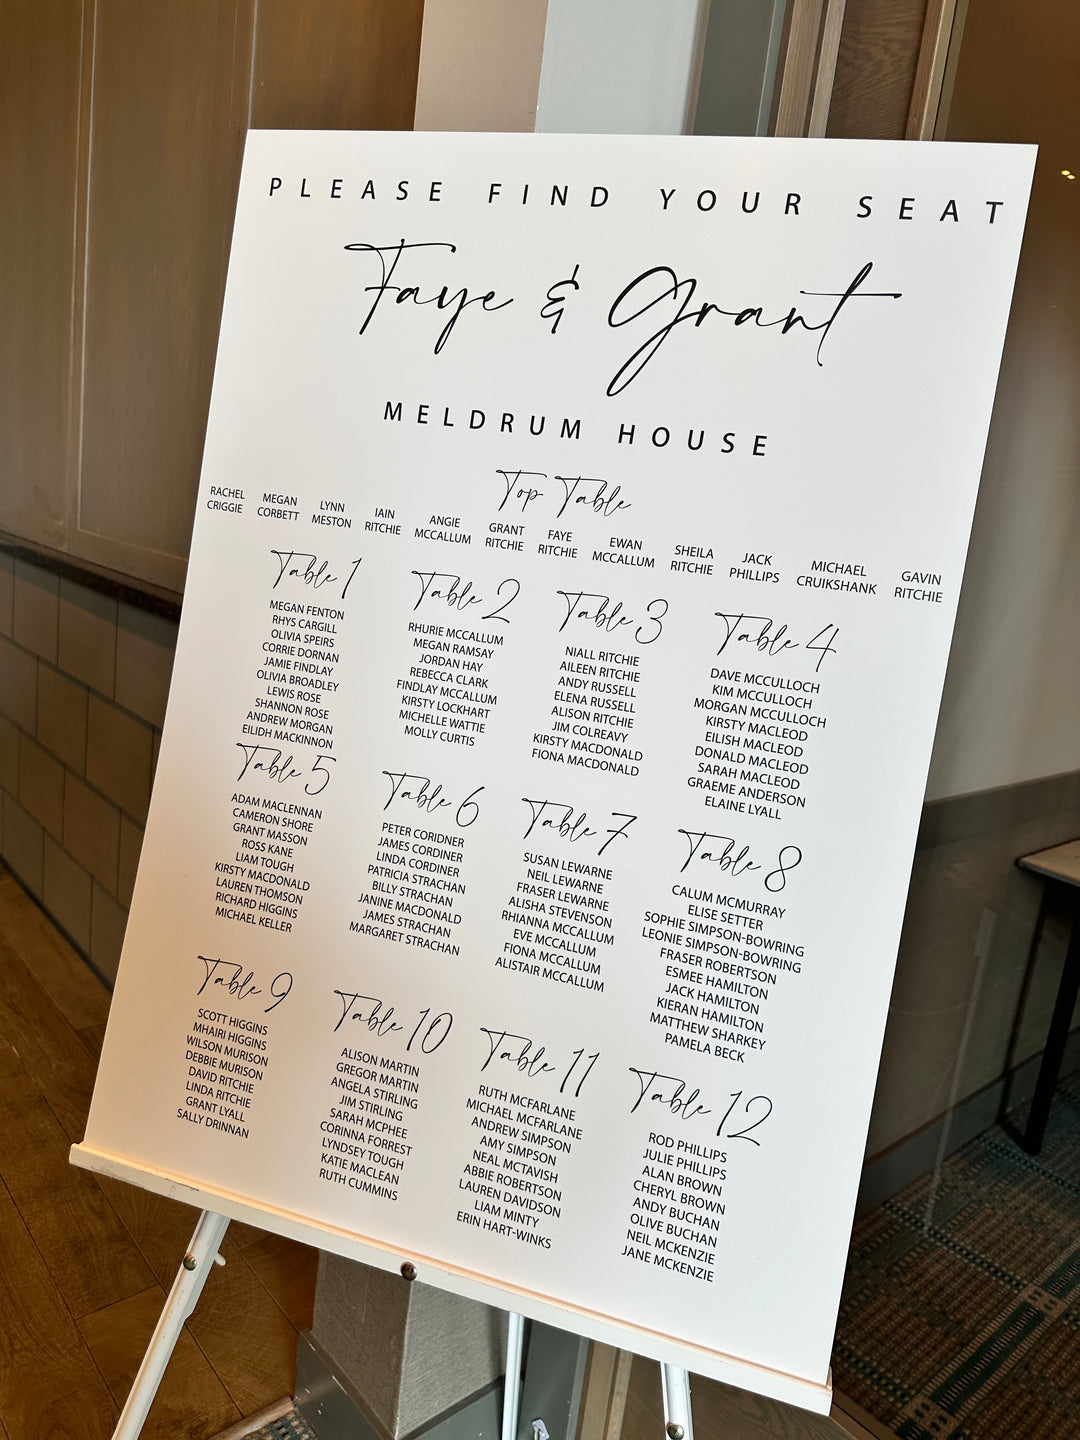 PLEASE FIND YOUR SEAT
Faye & Grant
MELDRUM HOUSE
Top Table
RACHEL CRIGGIE
MEGAN CORBETT
LYNN MESTON
IAIN RITCHIE
ANGIE MCCALLUM
GRANT RITCHIE
FAYE RITCHIE
EWAN MCCALLUM
SHEILA RITCHIE
JACK PHILLIPS
MICHAEL CRUIKSHANK
GAVIN RITCHIE
Table 1
MEGAN FENTON
RHYS CARGILL
OLIVIA SPEIRS
CORRIE DORNAN
JAMIE FINDLAY
OLIVIA BROADLEY
LEWIS ROSE
SHANNON ROSE
ANDREW MORGAN
EILIDH MACKINNON
Table 2
RHURIE MCCALLUM
MEGAN RAMSAY
JORDAN HAY
REBECCA CLARK
FINDLAY MCCALLUM
KIRSTY LOCKHART
MICHELLE WATTIE
MOLLY CURTIS
Table 3
NIALL RITCHIE
AILEEN RITCHIE
ANDY RUSSELL
ELENA RUSSELL
ALISON RITCHIE
JIM COLREAVY
KIRSTY MACDONALD
FIONA MACDONALD
Table 4
DAVE MCCULLOCH
KIM MCCULLOCH
MORGAN MCCULLOCH
KIRSTY MACLEOD
EILISH MACLEOD
DONALD MACLEOD
SARAH MACLEOD
GRAEME ANDERSON
ELAINE LYALL
Table 5
ADAM MACLENNAN
CAMERON SHORE
GRANT MASSON
ROSS KANE
LIAM TOUGH
KIRSTY MACDONALD
LAUREN THOMSON
RICHARD HIGGINS
MICHAEL KELLER
Table 6
PETER CORIDNER
JAMES CORDINER
LINDA CORDINER
PATRICIA STRACHAN
BILLY STRACHAN
JANINE MACDONALD
JAMES STRACHAN
MARGARET STRACHAN
Table 7
SUSAN LEWARNE
NEIL LEWARNE
FRASER LEWARNE
ALISHA STEVENSON
RHIANNA MCCALLUM
EVE MCCALLUM
FIONA MCCALLUM
ALISTAIR MCCALLUM
Table 8
CALUM MCMURRAY
ELISE SETTER
SOPHIE SIMPSON-BOWRING
LEONIE SIMPSON-BOWRING
FRASER ROBERTSON
ESMEE HAMILTON
JACK HAMILTON
KIERAN HAMILTON
MATTHEW SHARKEY
PAMELA BECK
Table 9
SCOTT HIGGINS
MHAIRI HIGGINS
WILSON MURISON
DEBBIE MURISON
DAVID RITCHIE
LINDA RITCHIE
GRANT LYALL
SALLY DRINNAN
Table 10
ALISON MARTIN
GREGOR MARTIN
ANGELA STIRLING
JIM STIRLING
SARAH MCPHEE
CORINNA FORREST
LYNDSEY TOUGH
KATIE MACLEAN
RUTH CUMMINS
Table 11
RUTH MCFARLANE
MICHAEL MCFARLANE
ANDREW SIMPSON
AMY SIMPSON
NEAL MCTAVISH
ABBIE ROBERTSON
LAUREN DAVIDSON
LIAM MINTY
ERIN HART-WINKS
Table 12
ROD PHILLIPS
JULIE PHILLIPS
ALAN BROWN
CHERYL BROWN
ANDY BUCHAN
OLIVE BUCHAN
NEIL MCKENZIE
JANE MCKENZIE